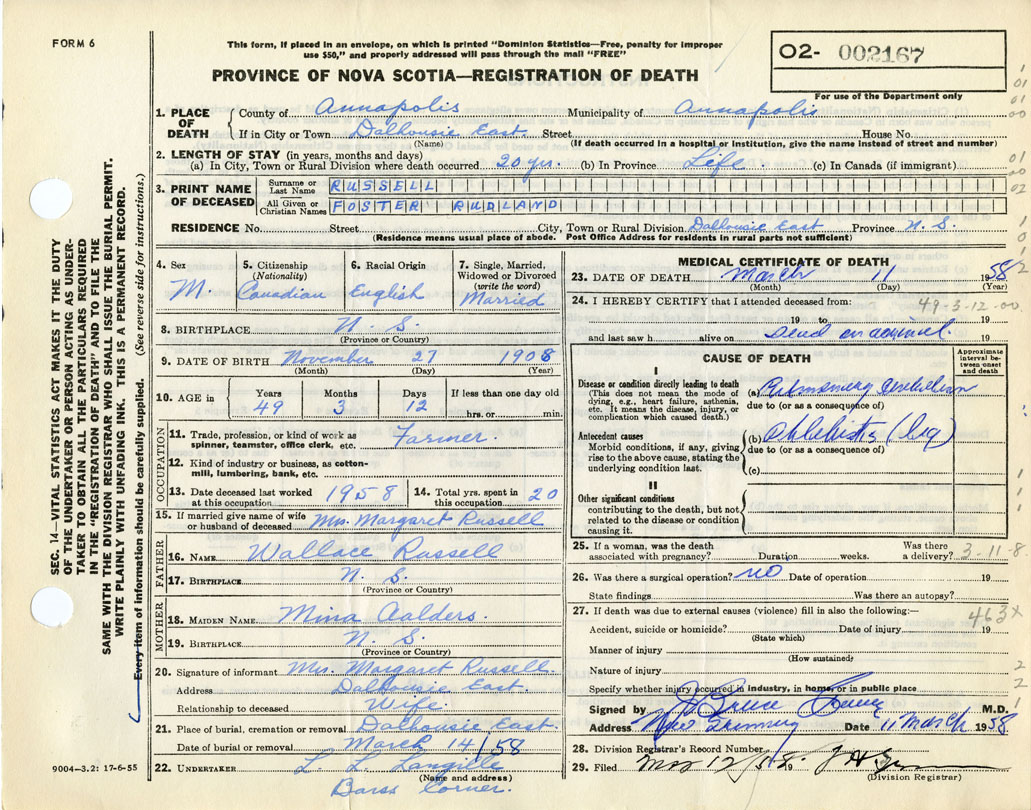 FORM 6
This form, if placed in an envelope, on which is printed "Dominion Statistics—Free, penalty for improper
use $50," and properly addressed will pass through the mail "FREE"
PROVINCE OF NOVA SCOTIA—REGISTRATION OF DEATH
O2- 002167
For use of the Department only
SEC. 14—VITAL STATISTICS ACT MAKES IT THE DUTY
OF THE UNDERTAKER OR PERSON ACTING AS UNDER-
TAKER TO OBTAIN ALL THE PARTICULARS REQUIRED
IN THE "REGISTRATION OF DEATH" AND TO FILE THE
SAME WITH THE DIVISION REGISTRAR WHO SHALL ISSUE THE BURIAL PERMIT.
WRITE PLAINLY WITH UNFADING INK. THIS IS A PERMANENT RECORD.
Every item of information should be carefully supplied. (See reverse side for instructions.)
1. PLACE OF DEATH
County of Annapolis Municipality of Annapolis
If in City or Town Dalhousie East Street House No.
(Name) (If death occurred in a hospital or institution, give the name instead of street and number)
2. LENGTH OF STAY (in years, months and days)
(a) In City, Town or Rural Division where death occurred 20 yrs. (b) In Province Life. (c) In Canada (if immigrant)
3. PRINT NAME OF DECEASED
Surname or Last Name RUSSELL
All Given or Christian Names FOSTER RUDLAND
RESIDENCE No. Street City, Town or Rural Division Dalhousie East Province N. S.
(Residence means usual place of abode. Post Office Address for residents in rural parts not sufficient)
4. Sex M.
5. Citizenship (Nationality) Canadian
6. Racial Origin English
7. Single, Married, Widowed or Divorced (write the word) Married
8. BIRTHPLACE N. S.
(Province or Country)
9. DATE OF BIRTH November 27 1908
(Month) (Day) (Year)
10. AGE in Years 49 Months 3 Days 12 If less than one day old hrs. or min.
OCCUPATION
11. Trade, profession, or kind of work as spinner, teamster, office clerk, etc. Farmer.
12. Kind of industry or business, as cotton-mill, lumbering, bank, etc.
13. Date deceased last worked at this occupation 1958
14. Total yrs. spent in this occupation 20
15. If married give name of wife or husband of deceased Mrs. Margaret Russell
FATHER
16. NAME Wallace Russell
17. BIRTHPLACE N. S.
(Province or Country)
MOTHER
18. MAIDEN NAME Mina Aalders.
19. BIRTHPLACE N. S.
(Province or Country)
20. Signature of informant Mrs. Margaret Russell.
Address Dalhousie East.
Relationship to deceased Wife.
21. Place of burial, cremation or removal Dalhousie East.
Date of burial or removal March 14/58
22. UNDERTAKER L. L. Langille
(Name and address)
Barss Corner.
9004—3.2: 17-6-55
MEDICAL CERTIFICATE OF DEATH
23. DATE OF DEATH March 11 1958
(Month) (Day) (Year)
24. I HEREBY CERTIFY that I attended deceased from: 49-3-12-00
19 to 19
and last saw h alive on dead on arrival. 19
CAUSE OF DEATH
Approximate interval between onset and death
I
Disease or condition directly leading to death
(This does not mean the mode of dying, e.g., heart failure, asthenia, etc. It means the disease, injury, or complication which caused death.)
(a) Pulmonary embolism
due to (or as a consequence of)
Antecedent causes
Morbid conditions, if any, giving rise to the above cause, stating the underlying condition last.
(b) Phlebitis (leg)
due to (or as a consequence of)
(c)
II
Other significant conditions
contributing to the death, but not related to the disease or condition causing it.
25. If a woman, was the death associated with pregnancy? Duration weeks. Was there a delivery? 3-11-8
26. Was there a surgical operation? no Date of operation 19
State findings Was there an autopsy?
27. If death was due to external causes (violence) fill in also the following:— 463x
Accident, suicide or homicide? Date of injury 19
(State which)
Manner of injury
(How sustained)
Nature of injury
Specify whether injury occurred in industry, in home, or in public place
Signed by J. Bruce M.D.
Address New Date 11 March 1958
28. Division Registrar's Record Number
29. Filed Mar 12/58 19
(Division Registrar)